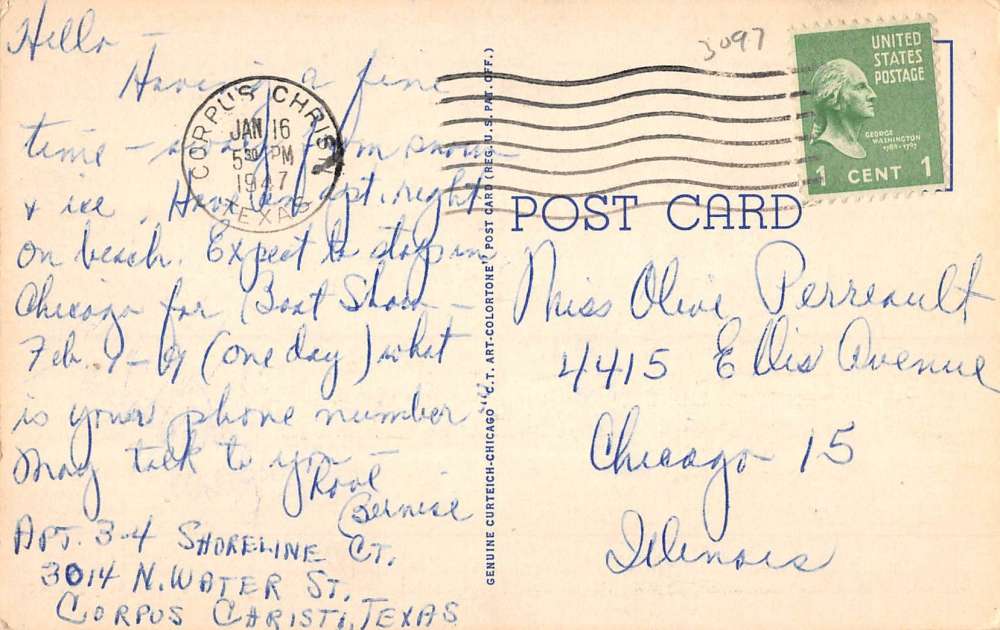 Hello -
Having a fine
time - away from snow
& ice. Have an apt. right
on beach. Expect to stop in
Chicago for Boat Show -
Feb. (one day) what
is your phone number
May talk to you -
Bernise
APT. 3-4 SHORELINE CT.
3014 N. WATER ST.
CORPUS CHRISTI, TEXAS
CORPUS CHRISTI
JAN 16
5 30 PM
1947
TEXAS
3097
UNITED
STATES
POSTAGE
GEORGE
WASHINGTON
1789-1797
1 CENT 1
POST CARD
Miss Olive Perreault
4415 Ellis Avenue
Chicago 15
Illinois
GENUINE CURTEICH-CHICAGO "C.T. ART-COLORTONE" POST CARD (REG. U.S. PAT. OFF.)